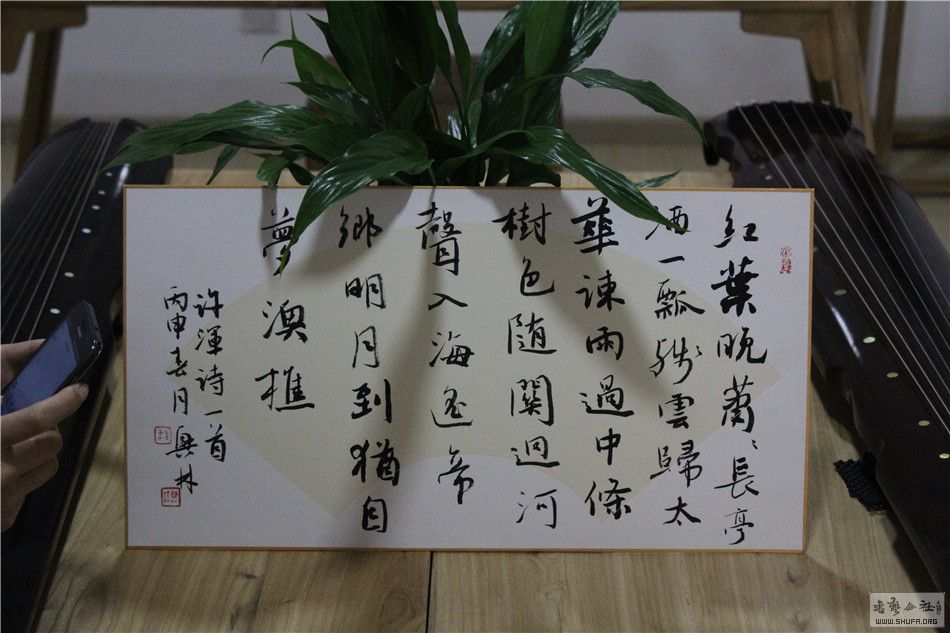 红葉晚蕭〻長亭
酒一瓢殘雲歸太
華疎雨過中條
樹色隨關迥河
聲入海遙帝
鄉明月到猶自
夢漁樵
许渾詩一首
丙申春月興林
書藝公社
WWW.SHUFA.ORG